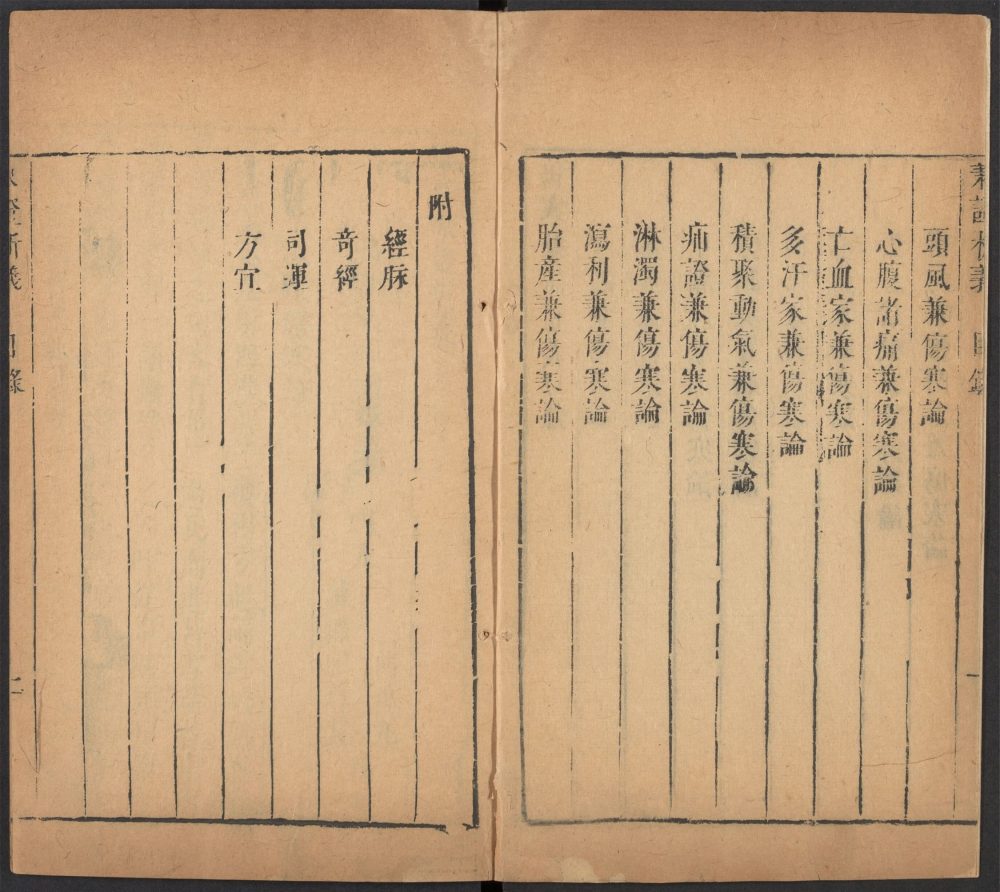 兼證析義 目錄 一
頭風兼傷寒論
心腹諸痛兼傷寒論
亡血家兼傷寒論
多汗家兼傷寒論
積聚動氣兼傷寒論
疝證兼傷寒論
淋濁兼傷寒論
瀉利兼傷寒論
胎產兼傷寒論
附
經脉
竒經
司運
方宜
證析義 目錄 二